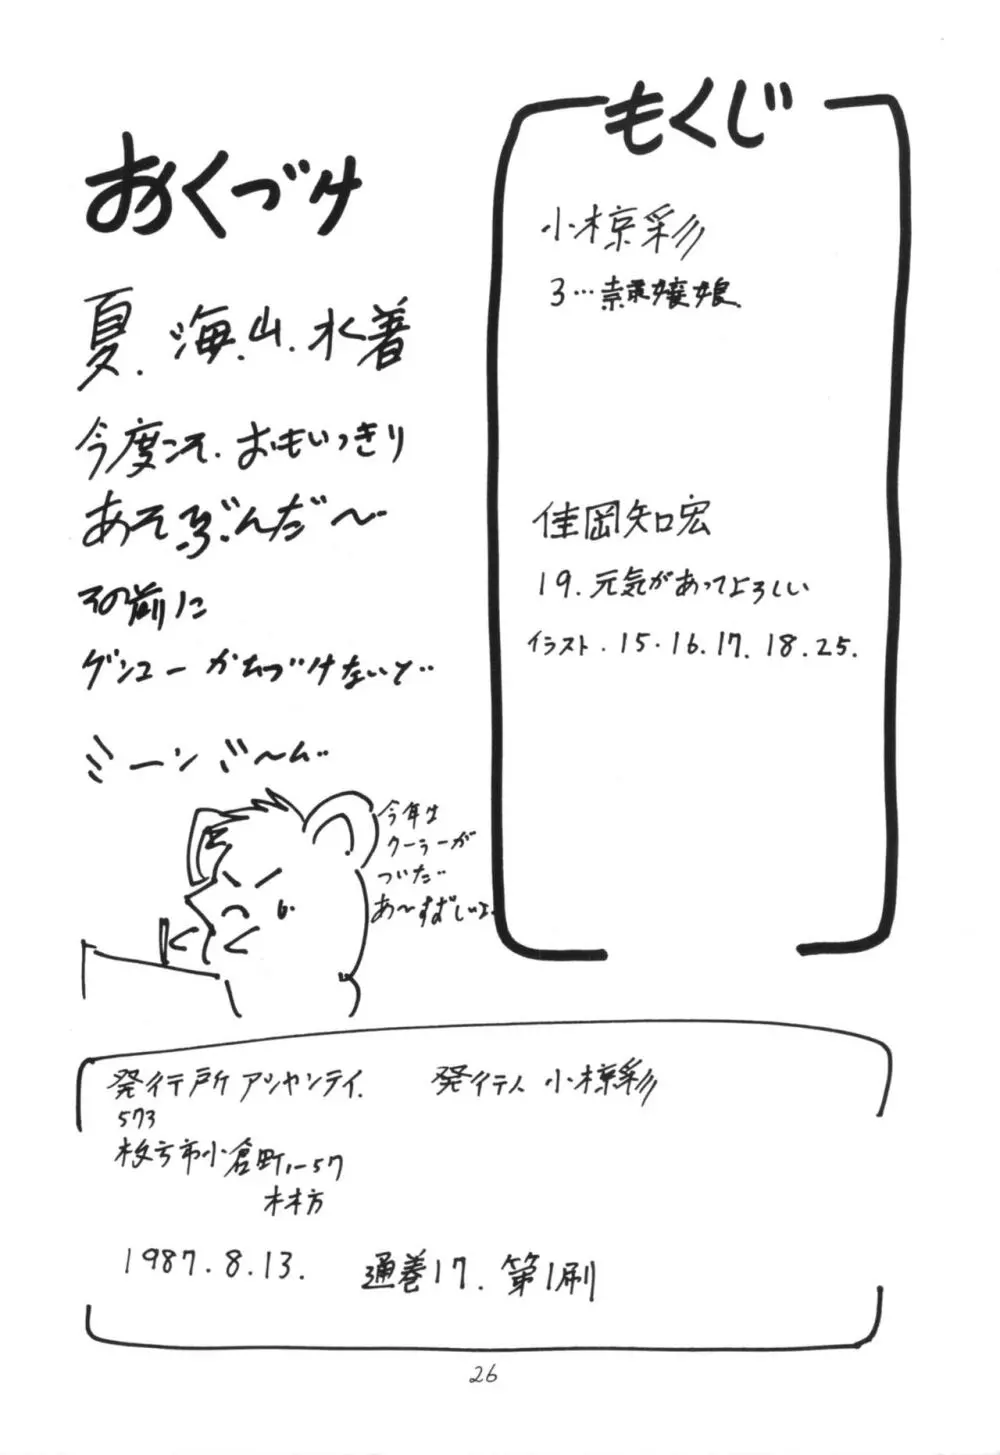 おくづけ
夏.海.山.水着
今度こそ.おもいっきり
あそぶんだ〜
その前に
ゲンコーかたづけないと…
ミーンミ〜ん…
今年は
クーラーが
ついた…
あ〜すずしいよ.
もくじ
小椋彩
3…
佳岡知宏
19.元気があってよろしい
イラスト.15.16.17.18.25.
発行所 アシャンティ. 発行人 小椋彩
573
枚方市小倉町1-57
林方
1987.8.13. 通巻17.第1刷
26